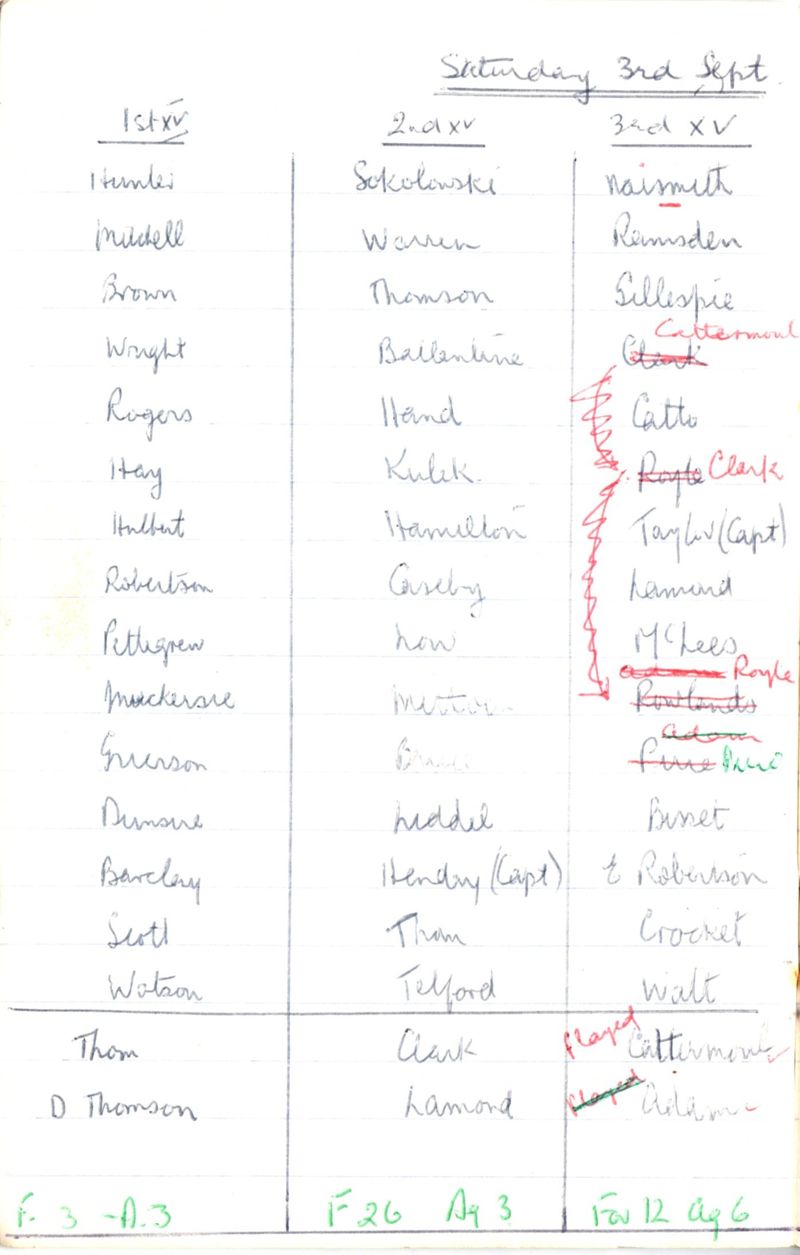 Saturday 3rd Sept
1st XV 2nd XV 3rd XV
Hunter Sokolowski Naismith
Mitchell Warren Ramsden
Brown Thomson Gillespie
Cattermoul
Wright Ballentine Clark
Rogers Hand Catto
Hay Kulek Royle Clark
Hulbert Hamilton Taylor (Capt)
Robertson Caseby Lamond
Pettigrew Low McLees
Adam Royle
Mackersie Rowlands
Adam
Grierson Bruce Pirie Pirie
Dunsire Liddel Bisset
Barclay Hendry (Capt) E Robertson
Scott Thom Crocket
Watson Telford Watt
Thom Clark Played Cattermoul
D Thomson Lamond Played Adam
F. 3 - A. 3 F 26 Ag 3 For 12 Ag 6